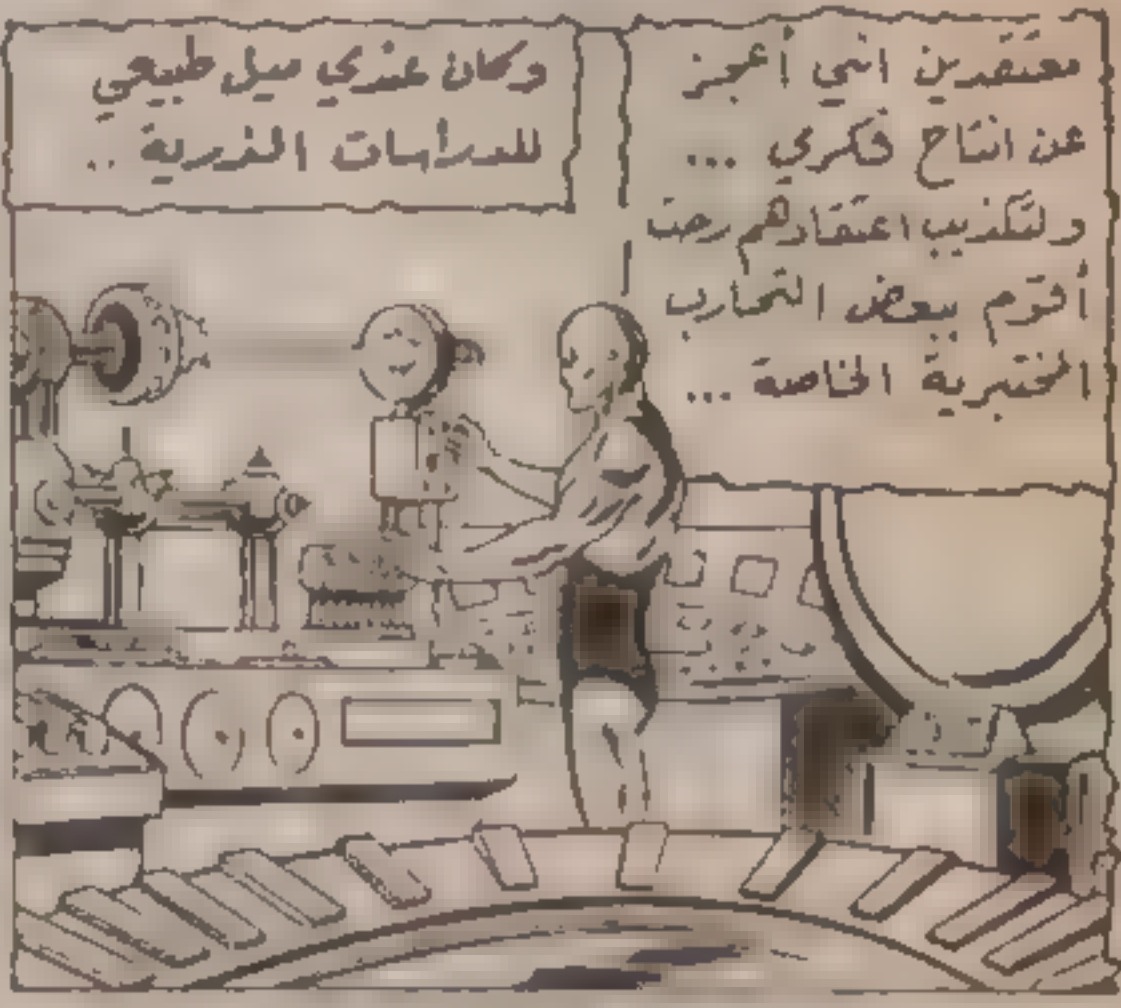 معتقدين انني أعجز
عن انتاج فكري ...
ولتكذيب اعتقادهم رحت
أقوم ببعض التجارب
المختبرية الخاصة ...
وكان عندي ميل طبيعي
للدراسات الذرية ..